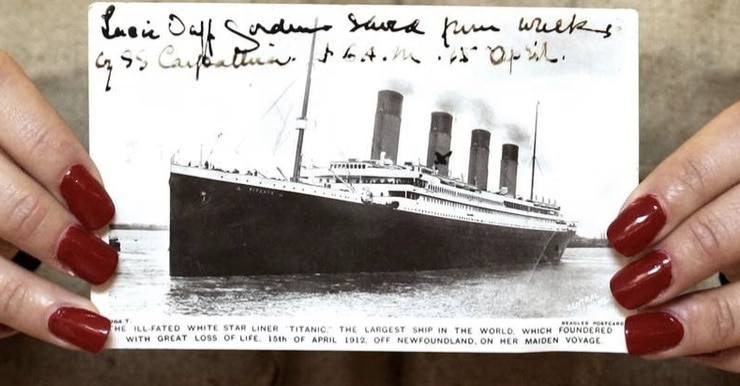 Lucie Duff Gordon saved from wreck
by SS Carpathia. 6 A.M. 15 April.
TITANIC
CENTRAL
BEAGLES POSTCARD
THE ILL-FATED WHITE STAR LINER "TITANIC," THE LARGEST SHIP IN THE WORLD, WHICH FOUNDERED
WITH GREAT LOSS OF LIFE, 15th OF APRIL 1912, OFF NEWFOUNDLAND, ON HER MAIDEN VOYAGE.